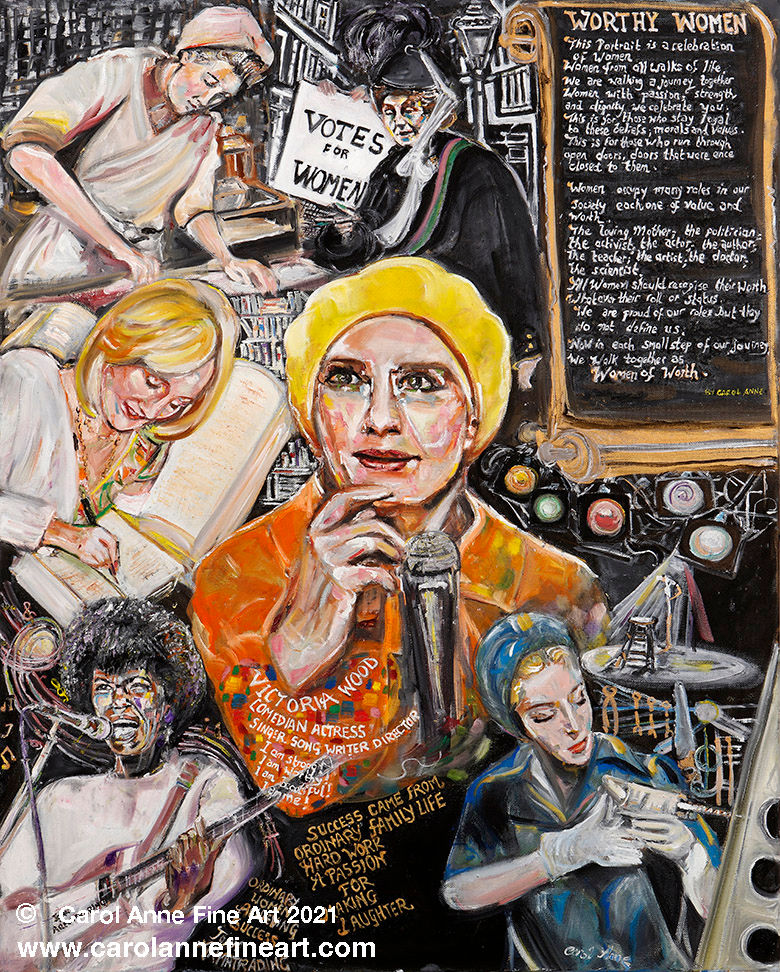 WORTHY WOMEN
This Portrait is a celebration
of Women
Women from all walks of life.
We are walking a journey together
Women with passion, strength
and dignity we celebrate you.
This is for those who stay loyal
to these beliefs, morals and values.
This is for those who run through
open doors, doors that were once
closed to them.
Women occupy many roles in our
society each one of value and
worth
The loving Mother, the politician,
the activist, the actor, the author,
The teacher, the artist, the doctor,
the scientist.
All Women should recognise their worth
Whatever their roll or status.
We are proud of our roles but they
do not define us.
Now in each small step of our journey
We walk together as
Women of Worth.
BY CAROL ANNE
VOTES
FOR
WOMEN
VICTORIA WOOD
COMEDIAN ACTRESS
SINGER SONG WRITER DIRECTOR
I am strong!
I am worthy!
I am
I am me!
SUCCESS CAME FROM
ORDINARY FAMILY LIFE
HARD WORK
A PASSION
FOR
MAKING
LAUGHTER
ORDINARY
SUCCESS
Carol Anne
© Carol Anne Fine Art 2021
www.carolannefineart.com